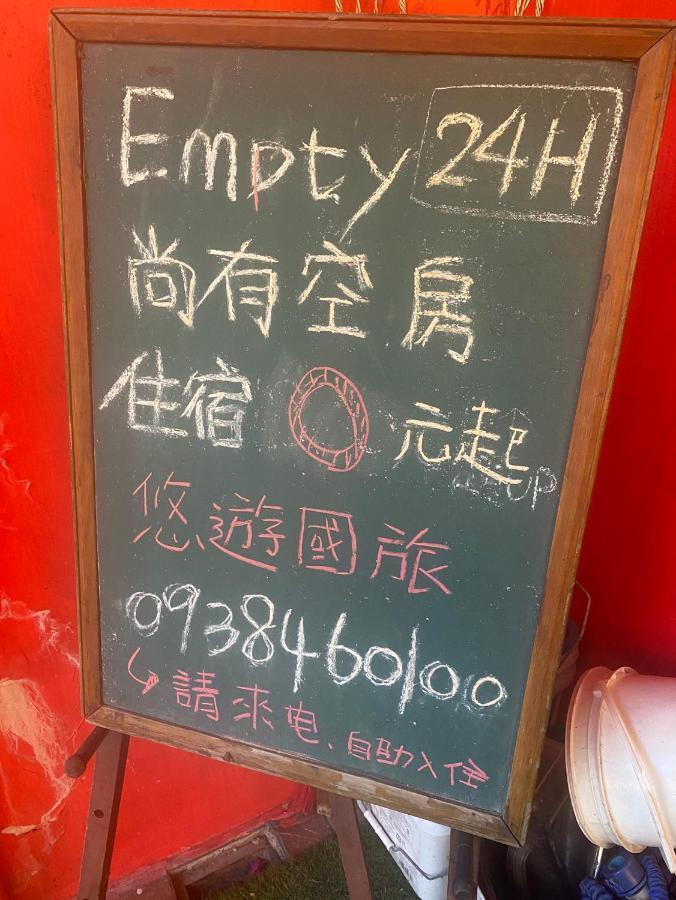 Empty 24H
尚有空房
住宿 0 元起
UP
悠遊國旅
0938460100
↳請來电、自助入住